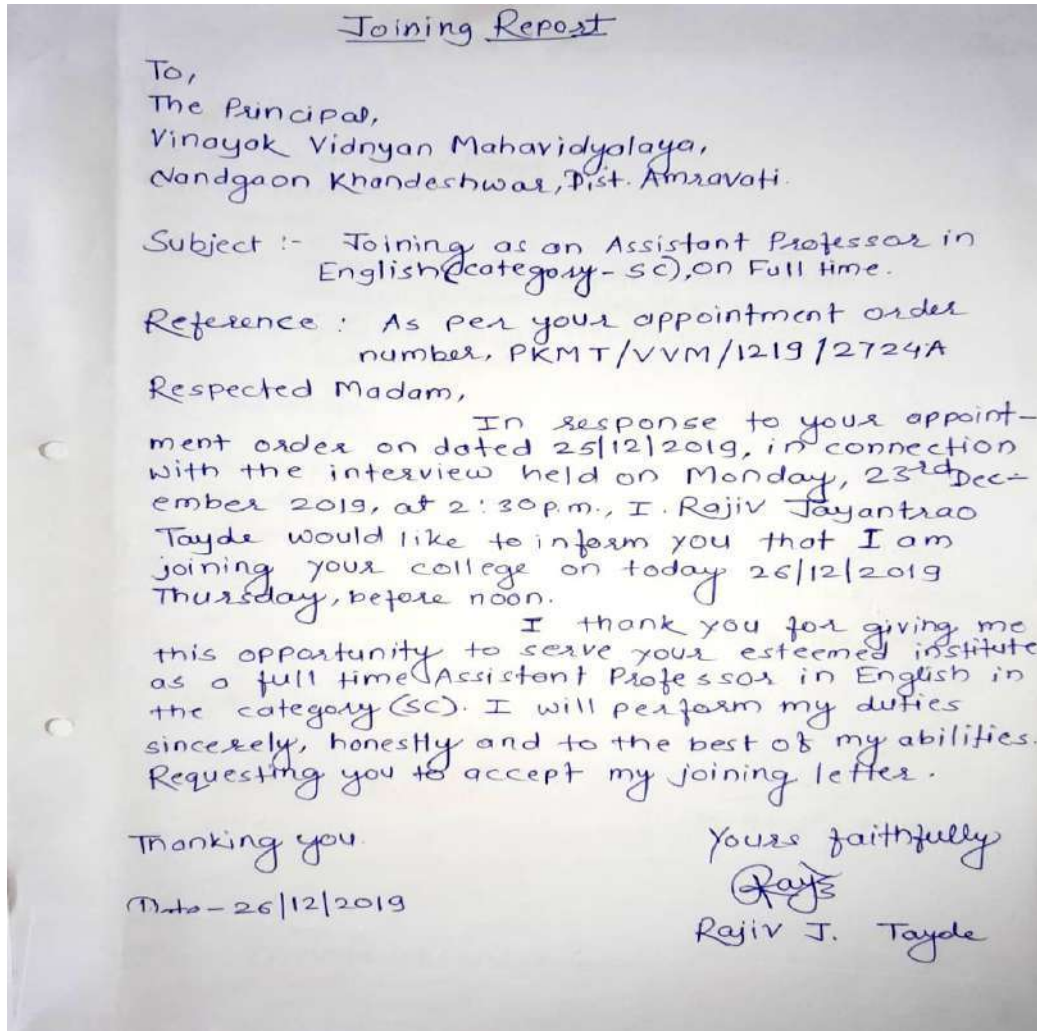 Joining Report
To,
The Principal,
Vinayak Vidnyan Mahavidyalaya,
Nandgaon Khandeshwar, Dist. Amravati.
Subject :- Joining as an Assistant Professor in
English (category - SC), on Full time.
Reference : As per your appointment order
number, PKMT/VVM/1219/2724A
Respected Madam,
In response to your appoint-
ment order on dated 25/12/2019, in connection
with the interview held on Monday, 23rd Dec-
ember 2019, at 2:30 p.m., I. Rajiv Jayantrao
Tayde would like to inform you that I am
joining your college on today 26/12/2019
Thursday, before noon.
I thank you for giving me
this opportunity to serve your esteemed institute
as a full time Assistant Professor in English in
the category (SC). I will perform my duties
sincerely, honestly and to the best of my abilities.
Requesting you to accept my joining letter.
Thanking you.
Yours faithfully
Date - 26/12/2019
Rajiv J. Tayde